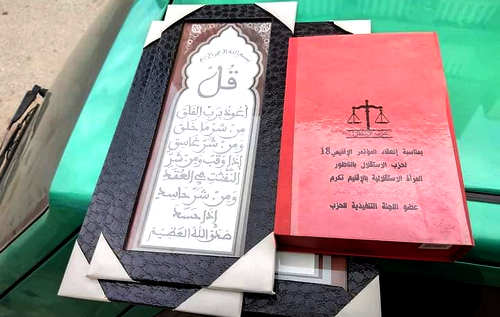 بسم الله الرحمن الرحيم
قُلْ
أعوذ برب الفلق
من شر ما خلق
ومن شر غاسق
إذا وقب ومن شر
النفثت في العقد
ومن شر حاسد
إذا حسد
صدق الله العظيم
حزب الاستقلال
بمناسبة إنعقاد المؤتمر الإقليمي 18
لحزب الاستقلال بالناظور
المرأة الاستقلالية بالإقليم تكرم
عضو اللجنة التنفيذية للحزب